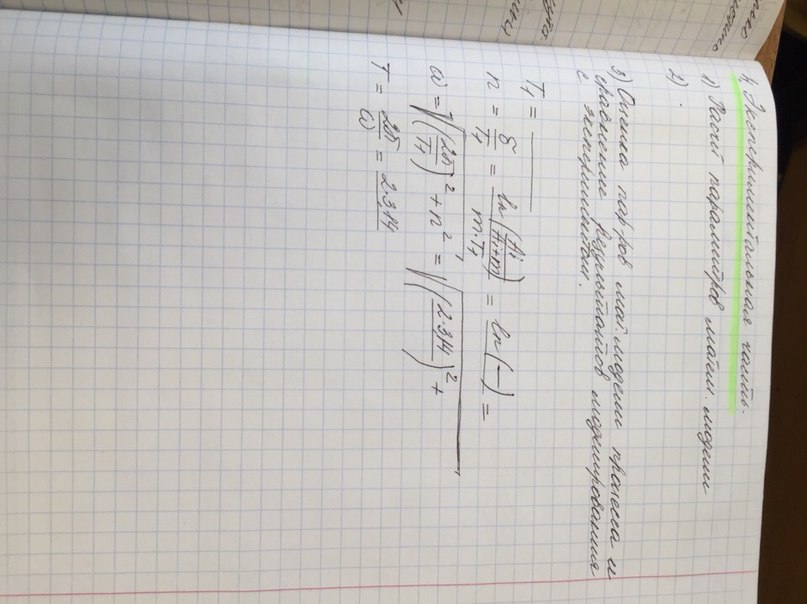 4. Экспериментальная часть.
1) Расчёт параметров матем. модели
2) .
3) Оценка пар-ров мат. модели процесса и
сравнение результатов моделирования
с экспериментом.
T₁ = ______
n = δ/T₁ = ln(Ai/Ai+m)/(m·T₁) = ln(—) =
ω = √((2π/T₁)² + n²) = √((2·3,14/ )² +
T = 2π/ω = 2·3,14/